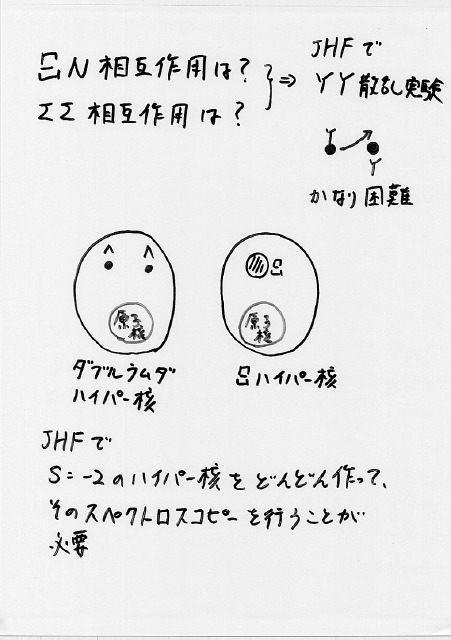 ΞN 相互作用は?
ΣΣ 相互作用は?
} ⇒
JHFで
YY散乱実験
Y
Y
かなり困難
Λ Λ
原子核
ダブルラムダ
ハイパー核
Ξ
原子核
Ξハイパー核
JHFで
S=-2のハイパー核をどんどん作って、
そのスペクトロスコピーを行うことが
必要